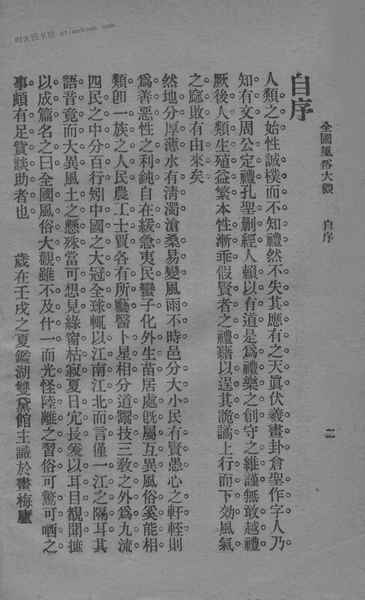 全國風俗大觀 自序 二
自序
人類之始性誠樸而不知禮然不失其應有之天眞伏羲畫卦倉聖作字人乃
知有文周公定禮孔聖删經人賴以有道是爲禮樂之創守之維謹無敢越禮
厥後人類生殖益繁本性漸乖假賢者之禮藉以逞其詭譎上行而下効風氣
之窳敗有由來矣
然地分厚薄水有淸濁滄桑易變風雨不時邑分大小民有賢愚心之軒輊則
爲善惡性之利鈍自在緩急夷民蠻子化外生苗居處旣屬互異風俗奚能相
類卽一族之人民農工士賈各有所鶩醫卜星相分道技三敎之外爲九流
四民之中分百行矧中國之大冠全球輒以江南江北而言僅一江之隔耳其
語音竟而大異風土之懸殊當可想見綠窗枯寂夏日冗長爰以耳目覩聞摭
以成篇名之曰全國風俗大觀雖不及什一而光怪陸離之習俗可驚可哂之
事頗有足資談助者也 歲在壬戌之夏鑑湖雙黛館主識於畫梅廬